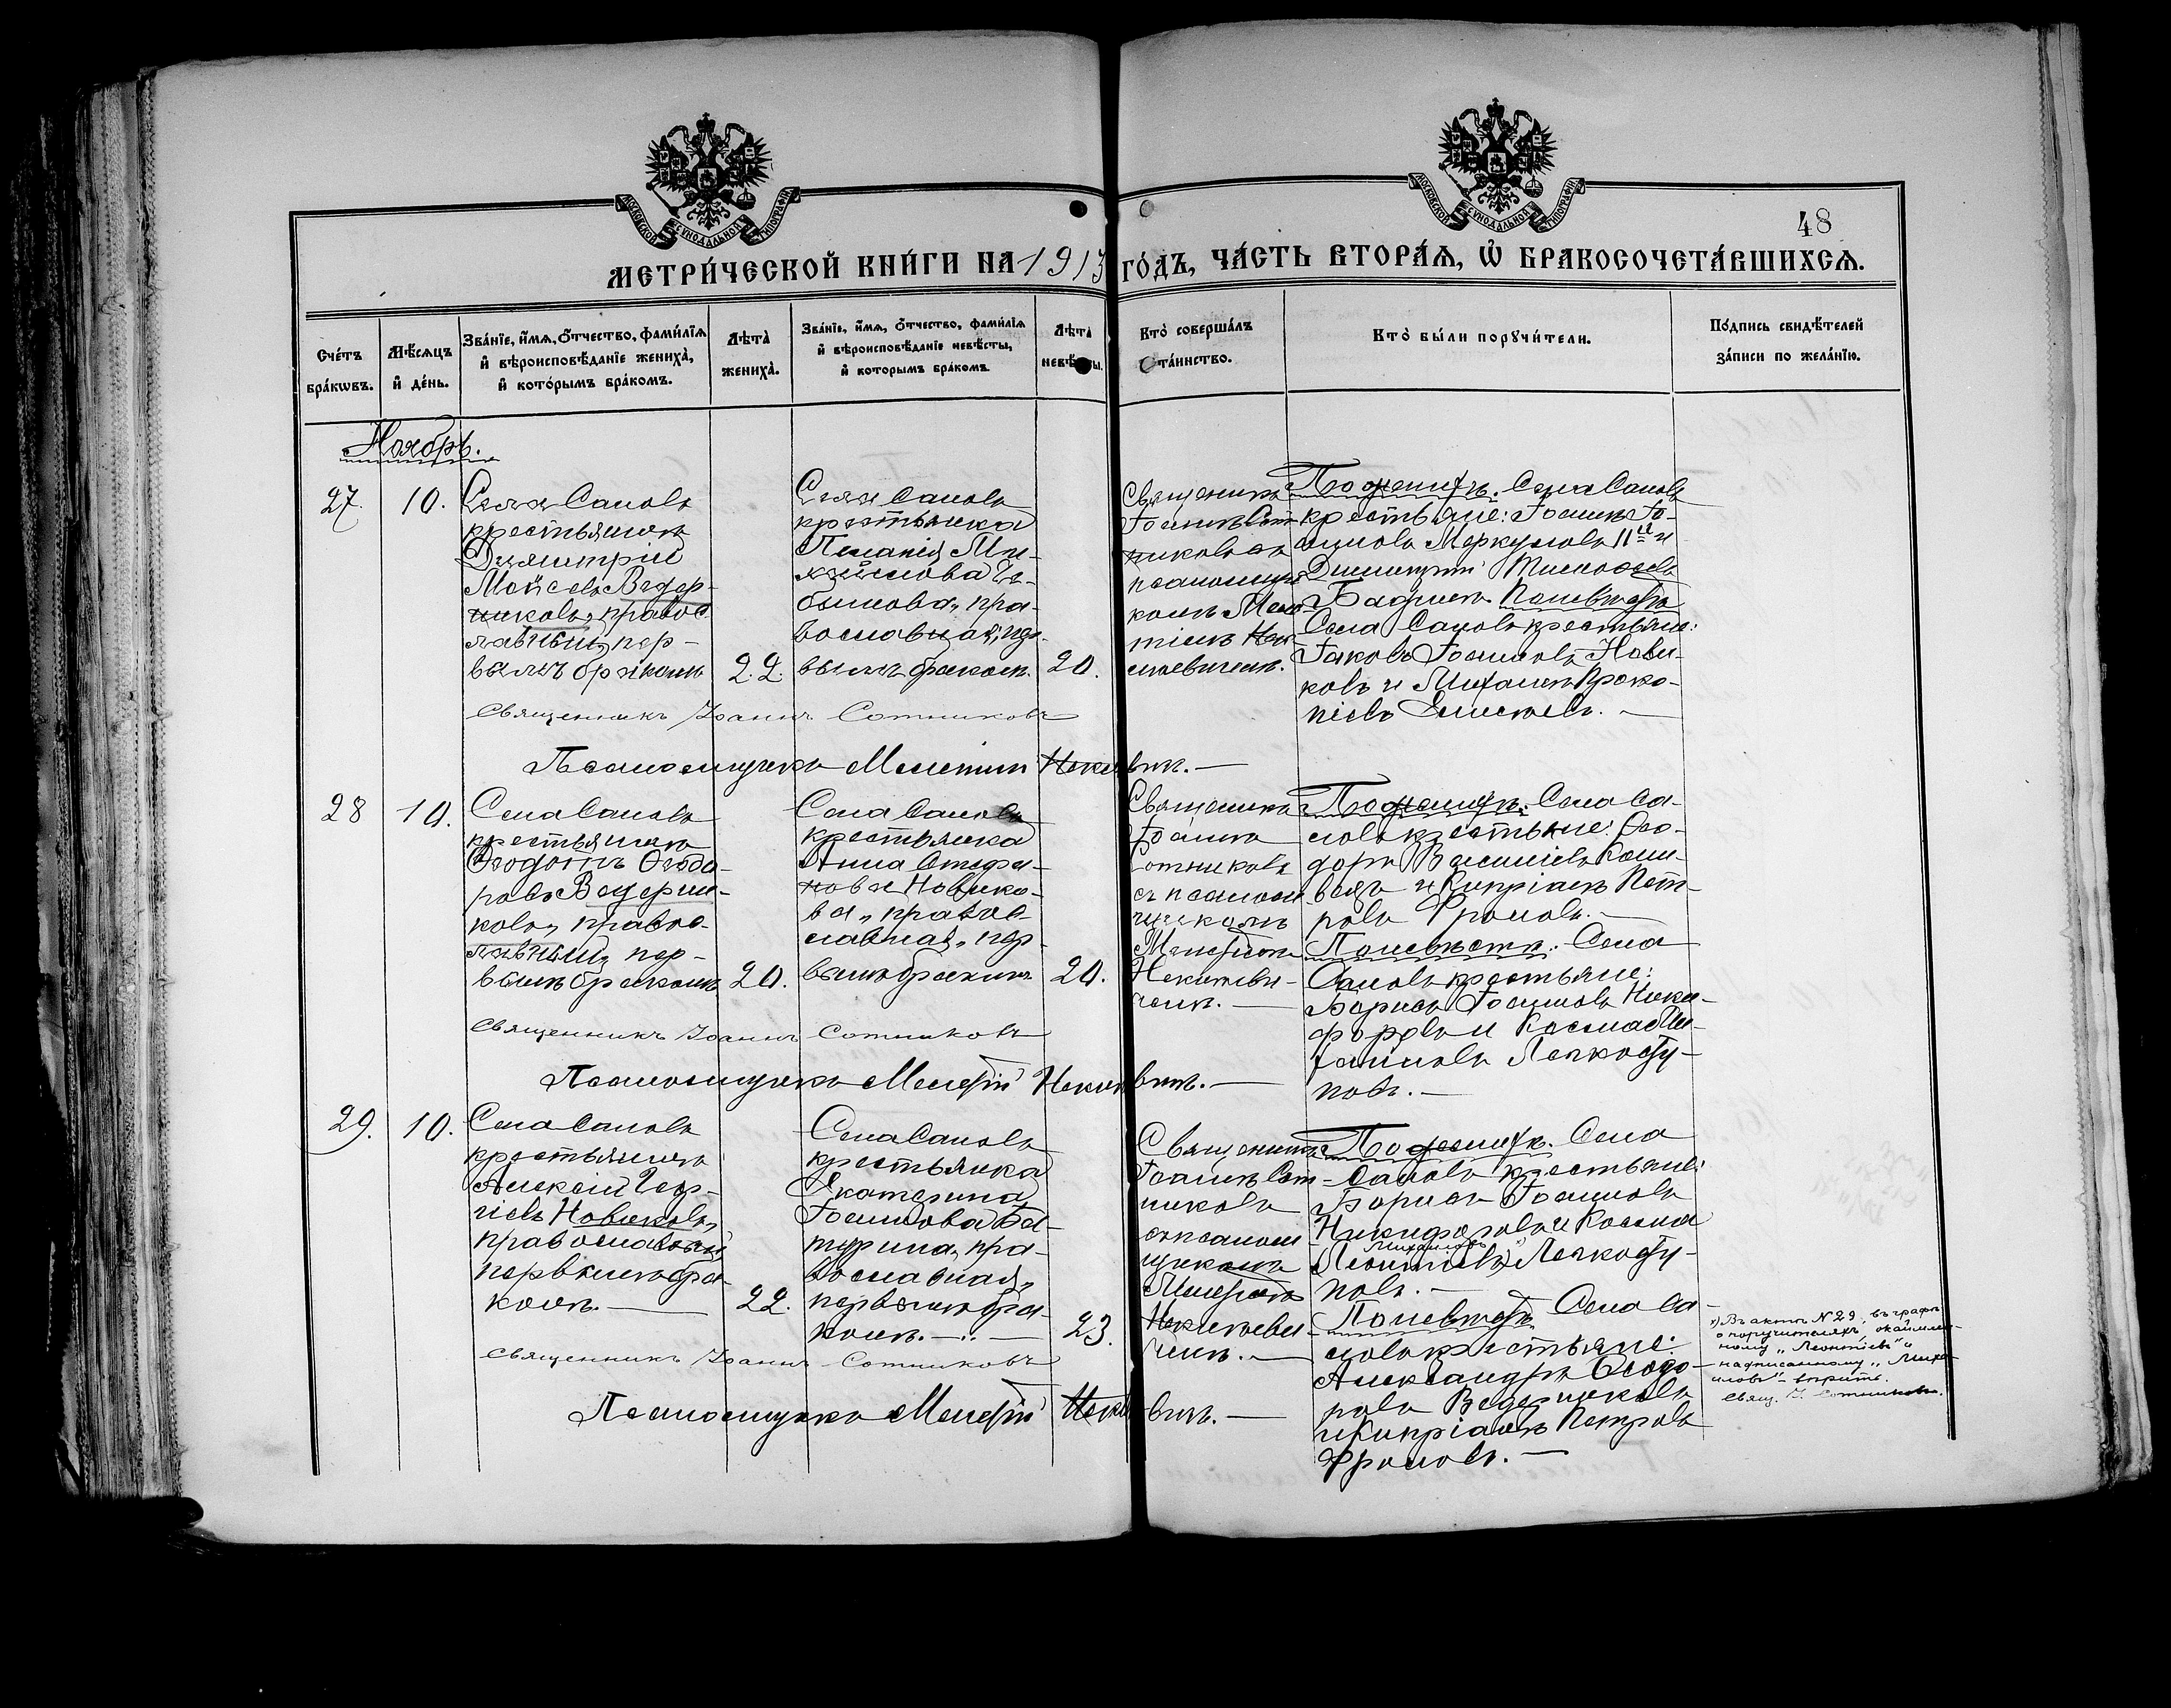 48
МЕТРИ́ЧЕСКОЙ КНИ́ГИ НА 1913 ГО́ДЪ, ЧА́СТЬ ВТОРА́Я, Ѽ БРАКОСОЧЕТА́ВШИХСЯ.
Сче́тъ бра́кѡвъ.
Мѣ́сяцъ и́ де́нь.
Зва́нїе, и́мя, ѻ́тчество, фами́лїя
и́ вѣроисповѣ́данїе жениха̀,
и́ кото́рымъ бра́комъ.
Лѣта̀
жениха̀.
Зва́нїе, и́мя, ѻ́тчество, фами́лїя
и́ вѣроисповѣ́данїе невѣ́сты,
и́ которымъ бра́комъ.
Лѣта̀
невѣ́сты.
Кто̀ соверша́лъ
та́инство.
Кто̀ бы́ли порꙋчи́тели.
По́дпись свидѣ́телей
за́писи по жела́нїю.
Ноябрь.
27.
10.
Села Салова
крестьянинъ
Димитрій
Моѵсеевъ Ведер-
никовъ, правос-
лавный, пер-
вымъ бракомъ
22.
Села Салова
крестьянка
Пелагія Ми-
хайлова
православная, пер-
вымъ бракомъ.
20.
Священникъ
Іоаннъ Сот-
никовъ съ
псаломщи-
комъ Меле-
тіемъ
По женихѣ. Села Салова
крестьяне: Іоаннъ Іо-
анновъ Меркуловъ 11й и
Димитрій
По невѣстѣ
Села Салова крестьяне:
Іаковъ Іоанновъ Нови-
ковъ и Михаилъ Проко-
піевъ
Священникъ Іоаннъ Сотниковъ
Псаломщикъ Мелетій
28
10.
Села Салова
крестьянинъ
Ѳеодотъ Ѳеодо-
ровъ Ведерни-
ковъ, правос-
лавный, пер-
вымъ бракомъ
20.
Села Салова
крестьянка
Анна Стефа-
нова Новико-
ва, правос-
лавная, пер-
вымъ бракомъ
20.
Священникъ
Іоаннъ
Сотниковъ
съ псалом-
щикомъ
Мелетіемъ
По женихѣ: Села Са-
лова крестьяне: Ѳео-
доръ Василіевъ
и Кипріанъ Пет-
ровъ Фроловъ.
По невѣстѣ: Села
Салова крестьяне:
Борисъ Іоанновъ Ники-
форовъ и Косма Ми-
хайловъ Легкосту-
повъ.
Священникъ Іоаннъ Сотниковъ
Псаломщикъ Мелетій
29.
10.
Села Салова
крестьянинъ
Алексій Геор-
гіевъ Новиковъ,
православный,
первымъ бра-
комъ.
22.
Села Салова
крестьянка
Екатерина
Іоаннова Ба-
турина, пра-
вославная,
первымъ бра-
комъ.
23.
Священникъ
Іоаннъ Сот-
никовъ
съ псалом-
щикомъ
Мелетіемъ
По женихѣ. Села
Салова крестьяне:
Борисъ Іоанновъ
Никифоровъ и Косма
Михаиловъ
(Леонтіевъ) Легкосту-
повъ.
По невѣстѣ. Села Са-
лова крестьяне:
Александръ Ѳеодо-
ровъ Ведерниковъ
и Кипріанъ Петровъ
Фроловъ.
х) Въ актѣ №29, въ графѣ
о поручителяхъ, окаймлен-
ному „Леонтіевъ" и
надписанному „Миха-
иловъ" - вѣрить.
Свящ. І. Сотниковъ.
Священникъ Іоаннъ Сотниковъ
Псаломщикъ Мелетій